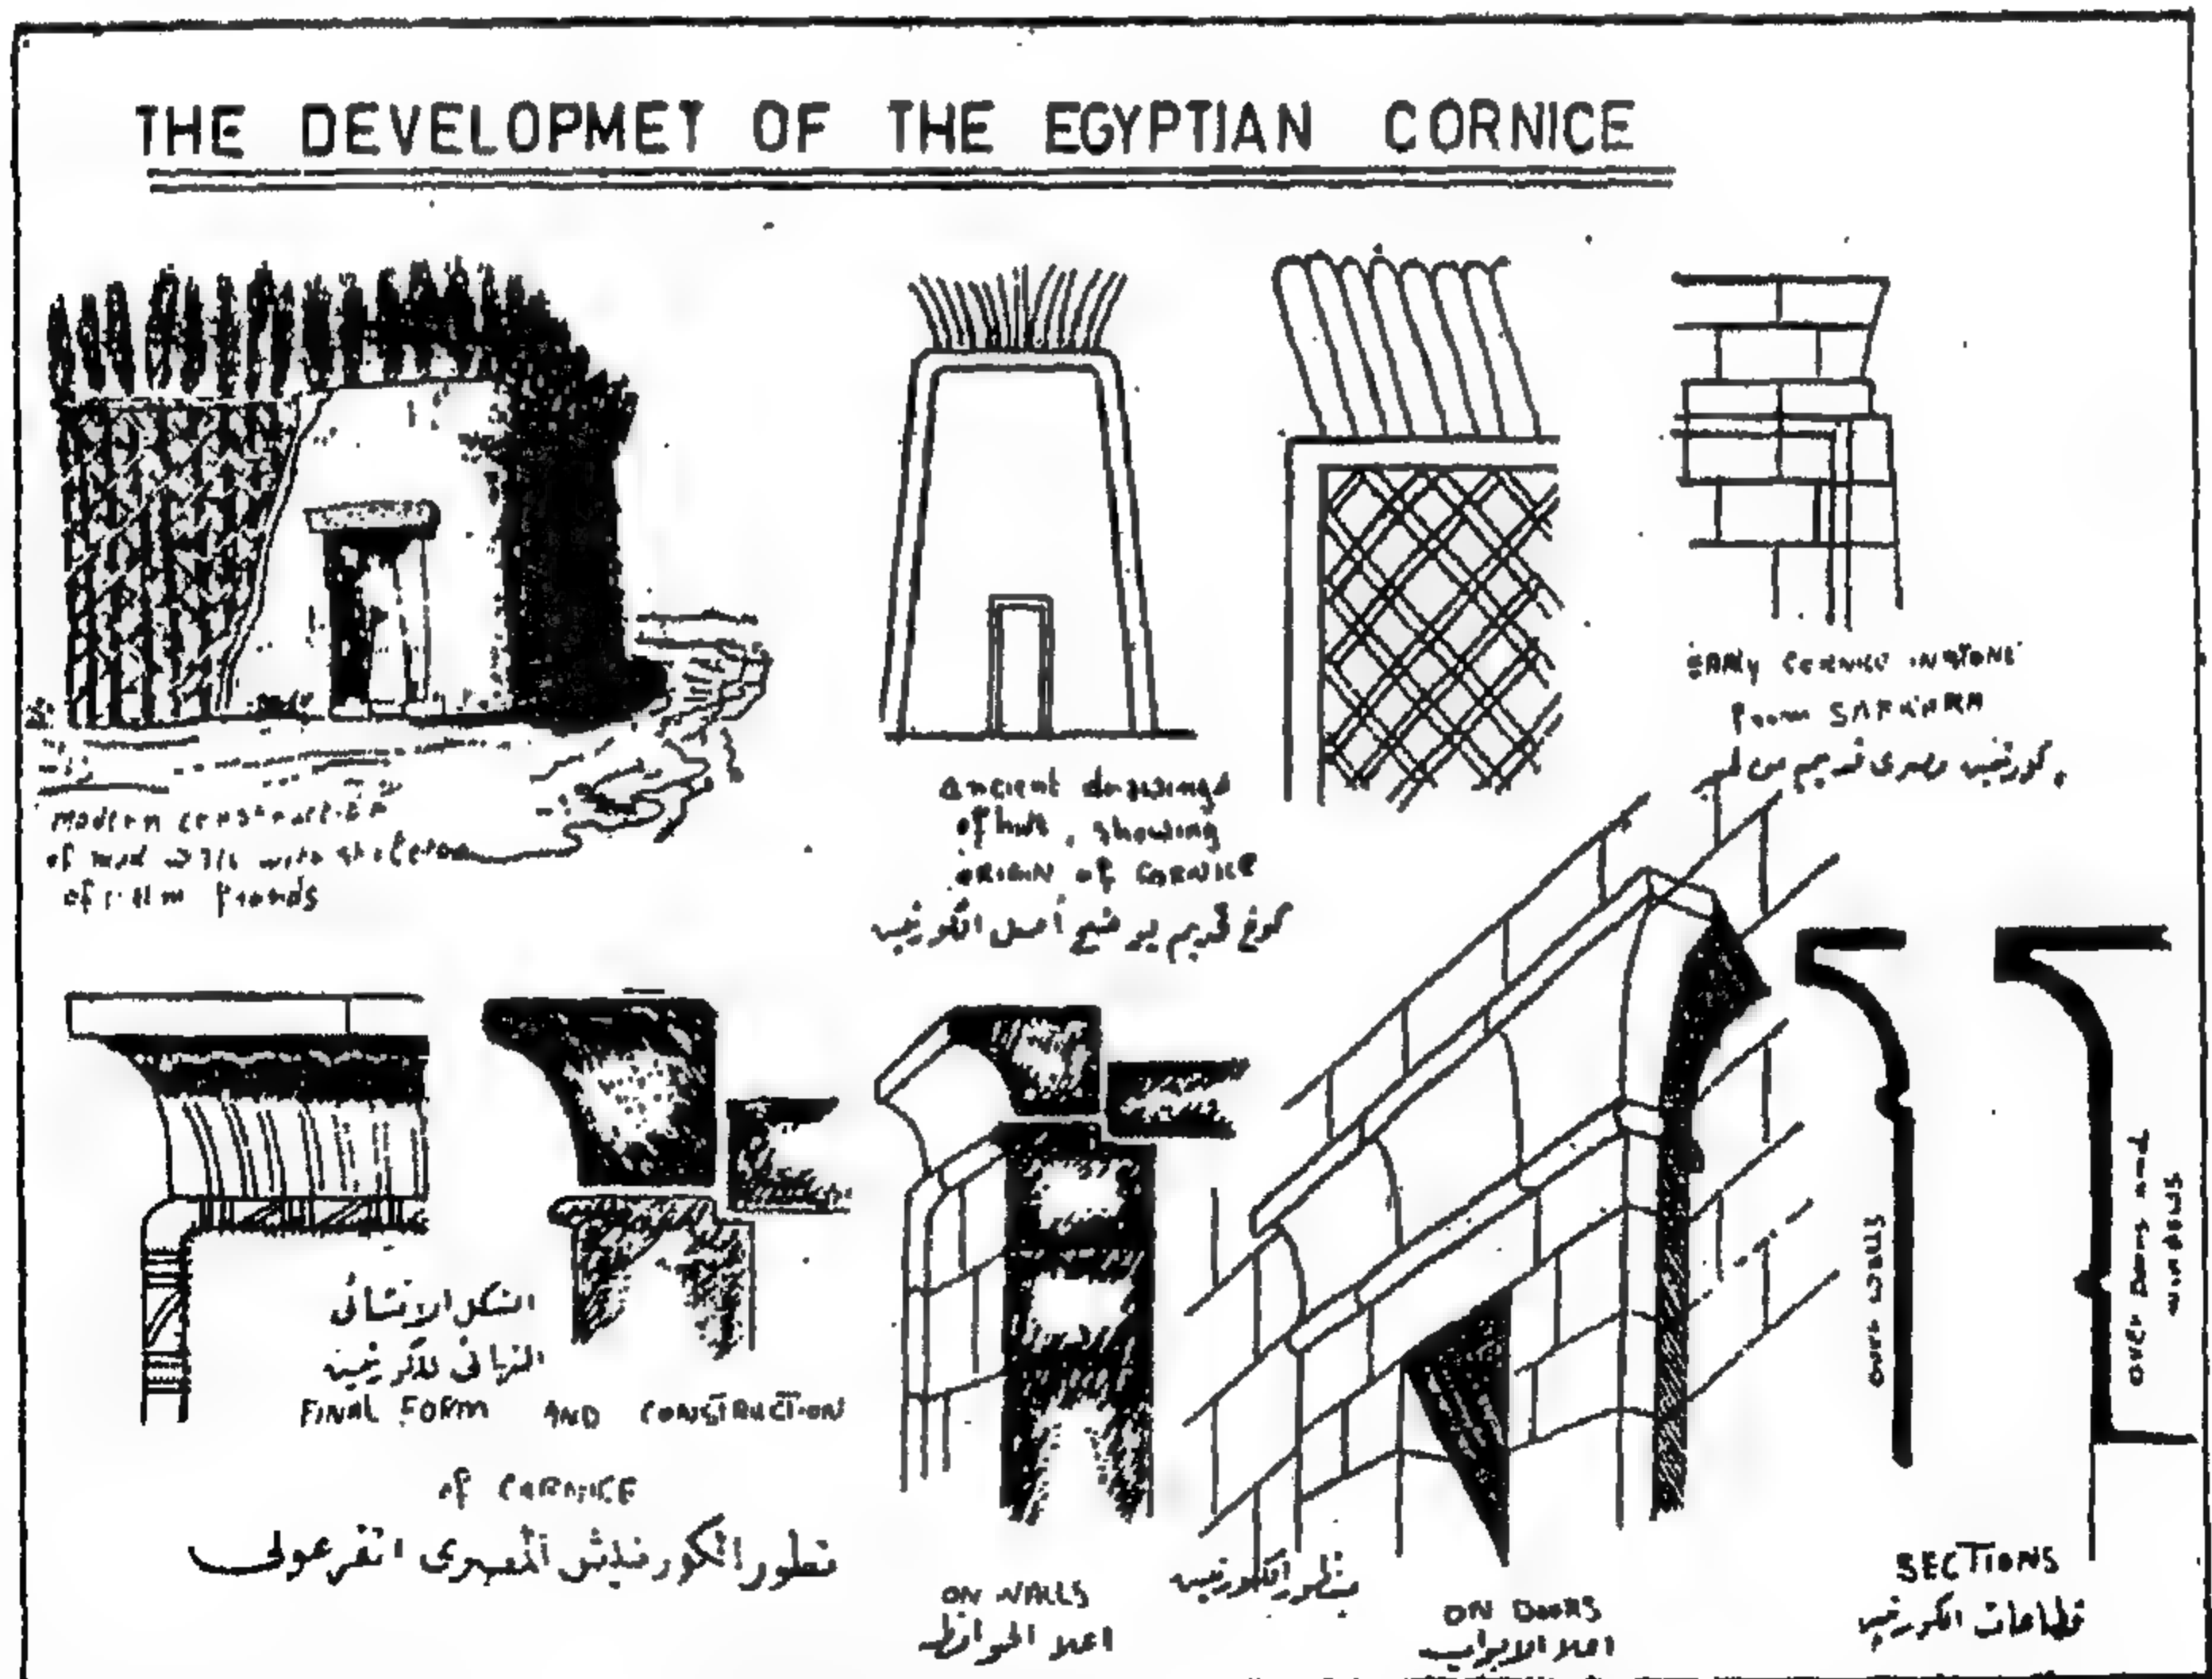 THE DEVELOPMET OF THE EGYPTIAN CORNICE
modern construction
of mud walls with skeleton
of palm fronds
ancient drawings
of hut, showing
ORIGIN of CORNICE
كوخ قديم يوضح أصل الكورنيش
EARLY CORNICE IN STONE
from SAKKARA
كورنيش مصرى قديم من
الشكل الإنشائى
النهائى للكورنيش
FINAL FORM AND CONSTRUCTION
of CORNICE
تطور الكورنيش المصرى الفرعونى
ON WALLS
اعلا الحوائط
منظور الكورنيش
ON DOORS
اعلا الابواب
over walls
over Doors and
windows
SECTIONS
قطاعات الكورنيش